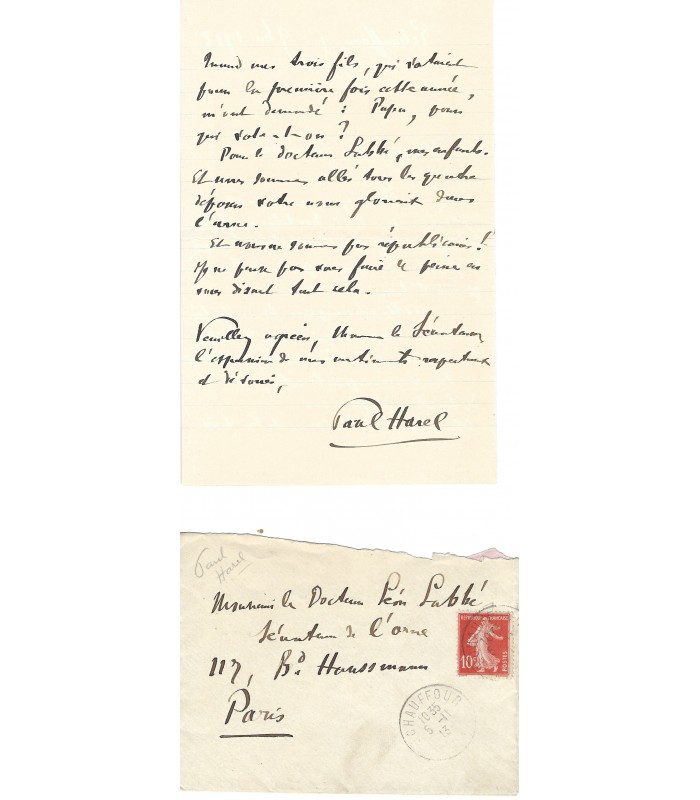 Quand mes trois fils, qui votaient
pour la première fois cette année,
m'ont demandé : Papa, pour
qui vote-t-on ?
Pour le docteur Labbé, mes enfants.
Et nous sommes allés tous les quatre
déposer votre nom glorieux dans
l'urne.
Et nous ne sommes pas républicains !
Je ne pense pas vous faire de peine en
vous disant tout cela.
Veuillez agréer, Monsieur le Sénateur
l'expression de mes sentiments respectueux
et dévoués,
Paul Harel
Paul
Harel
Monsieur le Docteur Léon Labbé
Sénateur de l'Orne
117, Bd Haussmann
Paris
REPUBLIQUE FRANÇAISE
10c
POSTES
CHAUFFOUR
10 35
5